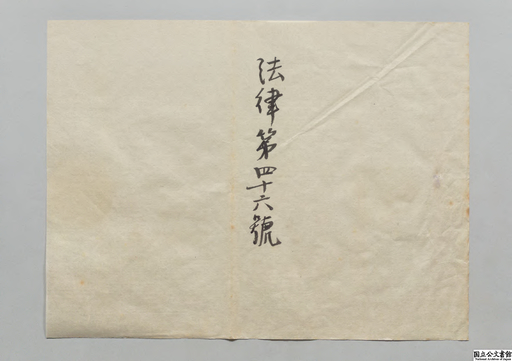 法律第四十六號
国立公文書館
National Archives of Japan